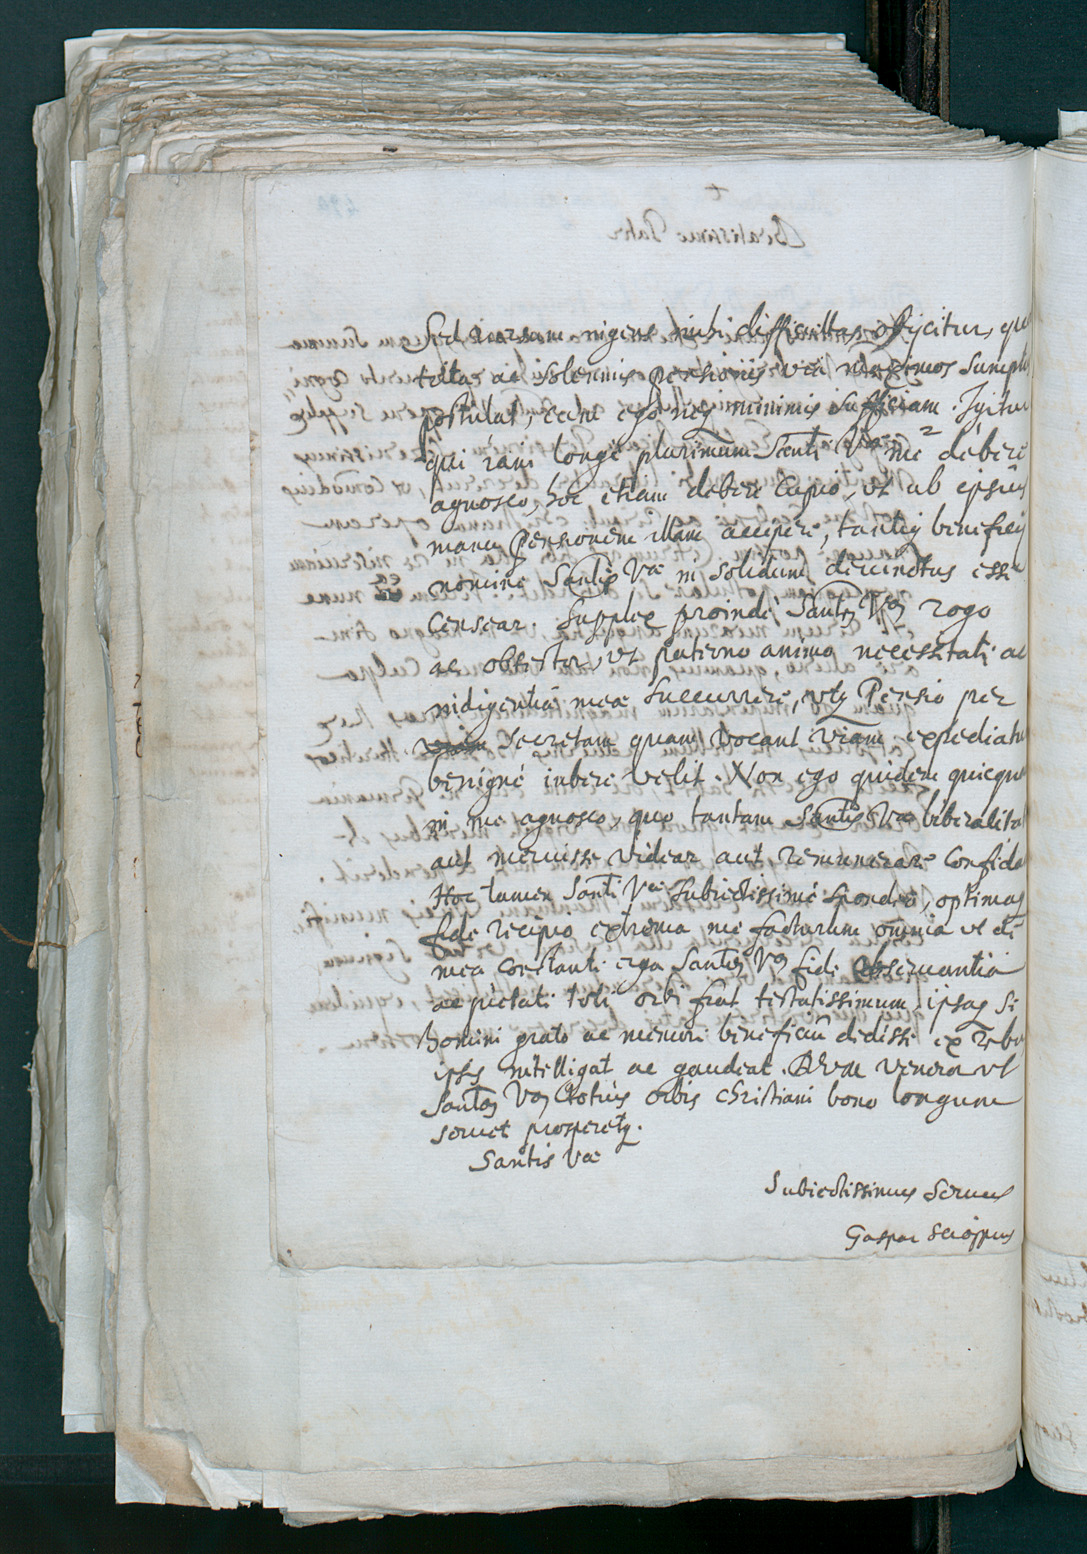 Sed rursum ingens mihi difficultas objicitur, qu
tota ac solennis Pensionis via maximos sumptu
postulat, cum ego neq minimis sufficiam. Igitur
qui iam longe plurimum Santi Vae me debere
agnosco, hoc etiam debere cupio, ut ab ipsius
manu Pensionem illam accipere, tantiq beneficij
nomine Santis Vae in solidum devinctus esse
censear. Supplex proinde Santem Vam rogo
ac obtestor, ut paterno animo necessitati ac
indigentiae meae succurrere, utq Pensio per
secretam quam vocant viam expediatu
benigné iubere velit. Non ego quidem quicqua
in me agnosco, quo tantam Santis Vae liberalita
aut meruisse videar aut remunerare confida
Hoc tamen Santi Vae subiectissimé spondeo, optimaq
fide recipio extrema me facturum omnia ut de
mea constanti erga Santem Vam fide observantia
ac pietate toti orbi fiat testatissimum ipsaq se
homini grato ac memori beneficiu dedisse ex rebus
ipsis intelligat ac gaudeat. Deum veneror ut
Santem Vam totius orbis christiani bono longum
servet prosperetq.
Santis Vae
Subiectissimus Servus
Gaspar Scioppius